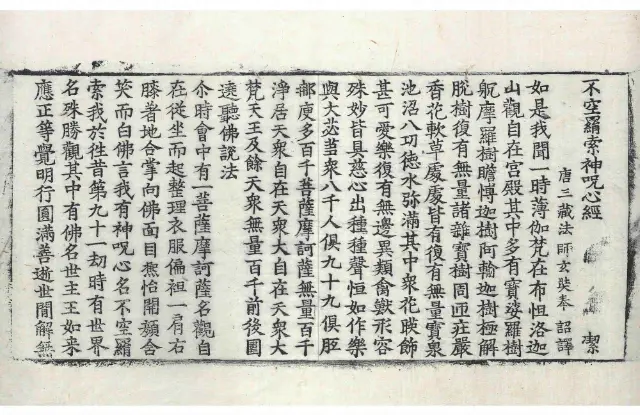 不空羂索神呪心經 潔
唐三藏法師玄奘奉 詔譯
如是我聞一時薄伽梵在布怛洛迦
山觀自在宮殿其中多有寶娑羅樹
躭摩羅樹瞻博迦樹阿輸迦樹極解
脫樹復有無量諸雜寶樹周匝莊嚴
香花軟草處處皆有復有無量寶泉
池沼八功德水弥滿其中衆花暎飾
甚可愛樂復有無邊異類禽獸形容
殊妙皆具慈心出種種聲恒如作樂
與大苾芻衆八千人俱九十九俱胝
那庾多百千菩薩摩訶薩無量百千
淨居天衆自在天衆大自在天衆大
梵天王及餘天衆無量百千前後圍
遶聽佛說法
尒時會中有一菩薩摩訶薩名觀自
在從坐而起整理衣服偏袒一肩右
膝著地合掌向佛面目熙怡開顏含
笑而白佛言我有神呪心名不空羂
索我於往昔第九十一劫時有世界
名殊勝觀其中有佛名世主王如来
應正等覺明行圓滿善逝世間解無